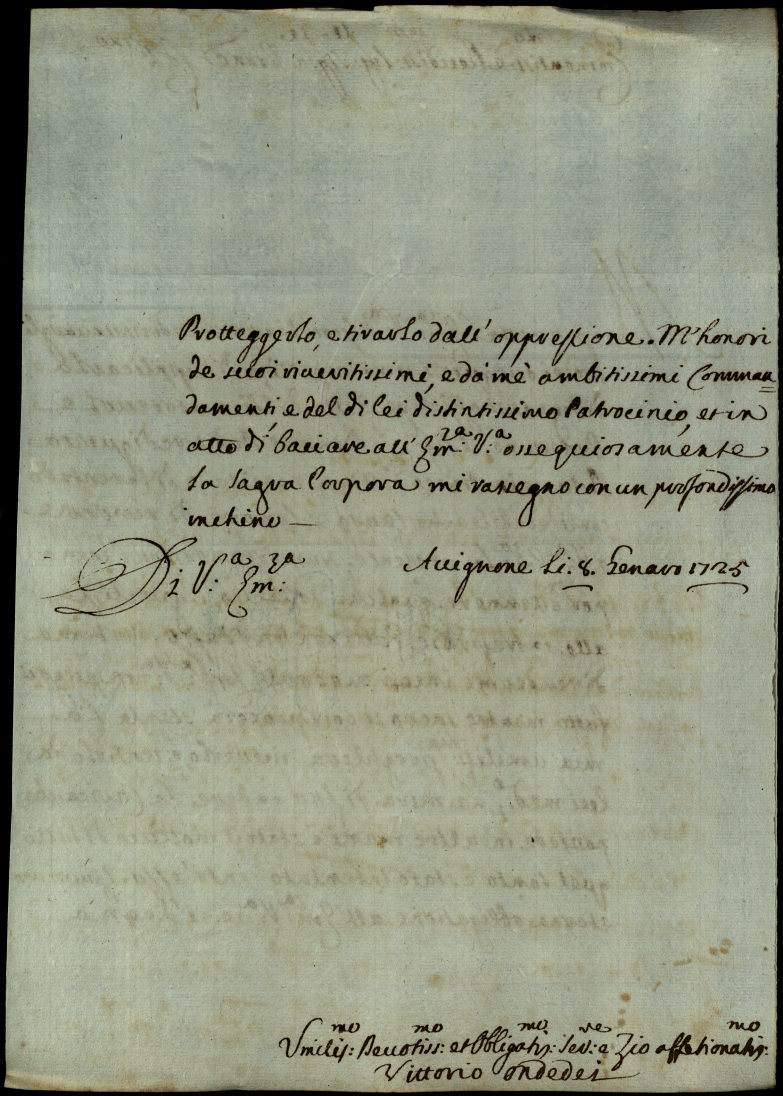 Protteggerlo, e tirarlo dall' oppressione. M'honori
de suoi riveritissimi, e dà mè ambitissimi Comman=
damenti e del di lei distintissimo Patrocinio, et in
atto di baciare all' Em:za V:a ossequiosamente
la Sagra Porpora mi rassegno con un profondissimo
inchino —
Di V:a Em:za
Avignone li. 8. Genaro 1725
Umiliss:mo Devotiss:mo et Obligatis:mo Ser:re e Zio affetionatis:mo
Vittorio Ondedei